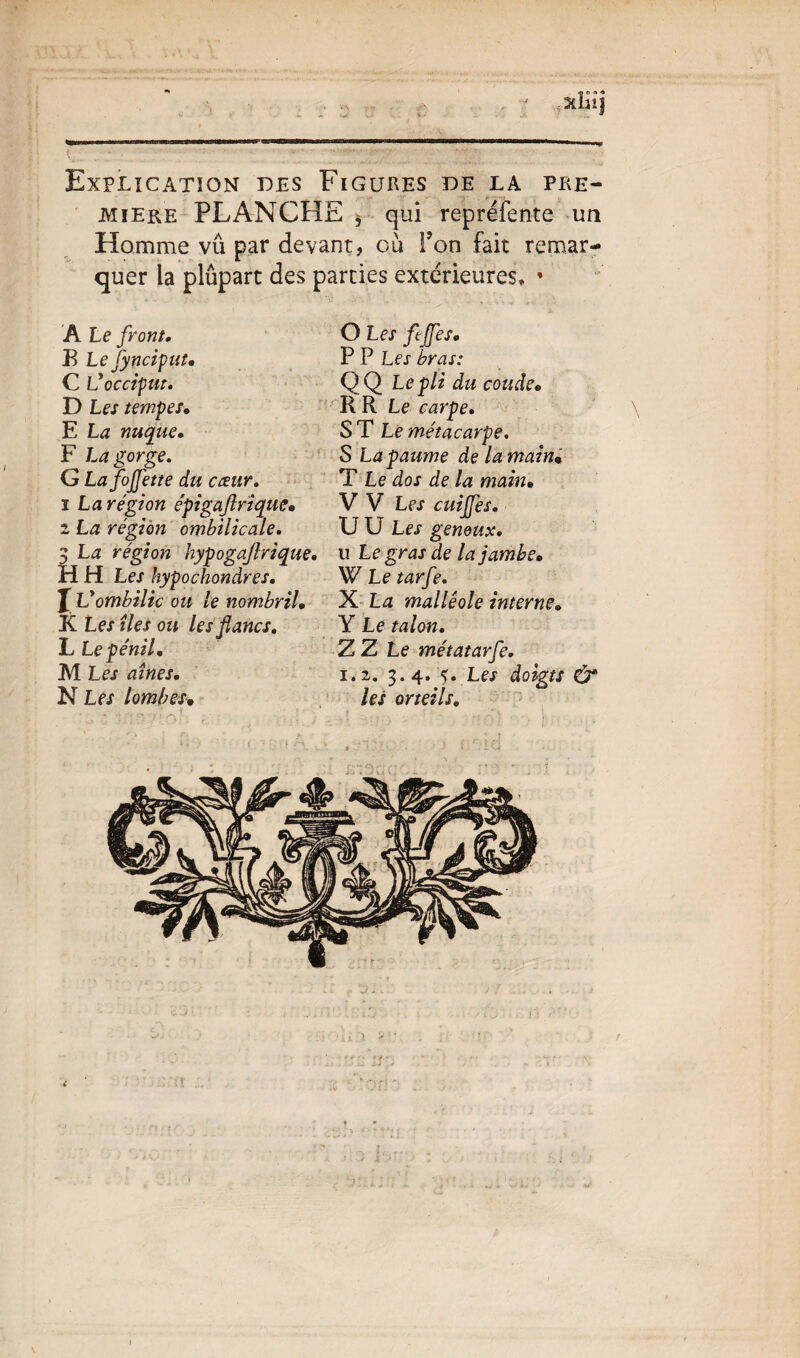 xliij
EXPLICATION DES FIGURES DE LA PRE-
MIERE PLANCHE, qui repréſente un
Homme vû par devant, où l'on fait remar-
quer la plûpart des parties extérieures.
A Le front.
B Le ſynciput.
C L'occiput.
D Les tempes.
E La nuque.
F La gorge.
G La foſſette du cœur.
1 La région épigaſtrique.
2 La région ombilicale.
3 La région hypogaſtrique.
H H Les hypochondres.
J L'ombilic ou le nombril.
K Les îles ou les flancs.
L Le pénil.
M Les aînes.
N Les lombes.
O Les feſſes.
P P Les bras:
Q Q Le pli du coude.
R R Le carpe.
S T Le métacarpe.
S La paume de la main.
T Le dos de la main.
V V Les cuiſſes.
U U Les genoux.
u Le gras de la jambe.
W Le tarſe.
X La malléole interne.
Y Le talon.
Z Z Le métatarſe.
1. 2. 3. 4. 5. Les doigts &
les orteils.